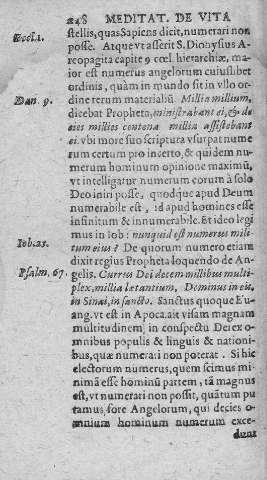 248 MEDITAT. DE VITA
Eccl. 1.
stellis, quas Sapiens dicit, numerari non
posse. Atque vt asserit S. Dionysius A-
reopagita capite 9 cœl. hierarchiæ, ma-
ior est numerus angelorum cuiuslibet
ordinis, quàm in mundo sit in vllo or-
Dan. 9.
dine rerum materialiũ Millia millium,
dicebat Propheta, ministrabant ei, & de-
cies millies centena millia assistebant
ei. vbi more suo scriptura vsurpat nume
rum certum pro incerto, & quidem nu-
merum hominum opinione maximũ,
vt intelligatur numerum eorum à solo
Deo iniri posse, quodque apud Deum
numerabile est, id apud homines esse
infinitum & innumerabile. Et ideo legi
mus in Iob: nunquid est numerus mili-
Iob. 25.
tum eius? De quorum numero etiam
dixit regius Propheta loquendo de An-
Psalm. 67.
gelis. Currus Dei decem millibus multi-
plex, millia lætantium, Dominus in eis,
in Sinai, in sancto. Sanctus quoque Eu-
ang. vt est in Apoca. ait visam magnam
multitudinem in conspectu Dei ex o-
mnibus populis & linguis & nationi-
bus, quæ numerari non poterat. Si hic
electorum numerus, quem scimus mi-
nimã esse hominũ partem, tã magnus
est, vt numerari non possit, quãtum pu
tamus fore Angelorum, qui decies o-
mnium hominum numerum exce-
dunt